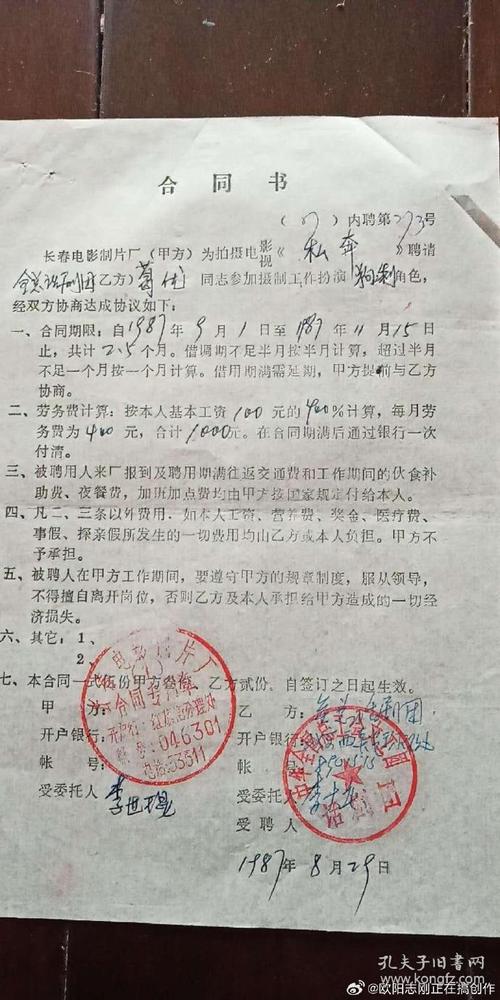 合同书
(87)内聘第273号
长春电影制片厂(甲方)为拍摄电影视《私奔》聘请
全总话剧团乙方)葛优同志参加摄制工作扮演狗剩角色,
经双方协商达成协议如下:
一、合同期限:自1987年9月1日至1987年11月15日
止,共计2.5个月。借调期不足半月按半月计算,超过半月
不足一个月按一个月计算。借用期满需延期,甲方提前与乙方
协商。
二、劳务费计算:按本人基本工资100元的400%计算,每月劳
务费为400元,合计1000元。在合同期满后通过银行一次
付清。
三、被聘用人来厂报到及聘用期满往返交通费和工作期间的伙食补
助费、夜餐费,加班加点费均由甲方按国家规定付给本人。
四、凡二、三条以外费用.如本人工资、营养费、奖金、医疗费、
事假、探亲假所发生的一切费用均由乙方或本人负担。甲方不
予承担。
五、被聘人在甲方工作期间,要遵守甲方的规章制度,服从领导,
不得擅自离开岗位,否则乙方及本人承担给甲方造成的一切经
济损失。
六、其它:1、
2、
七、本合同一式伍份甲方叁份,乙方贰份。自签订之日起生效。
甲方: 乙方:全总话剧团
开户银行: 开户银行:
帐号: 帐号:
受委托人 李世 受委托人 李
受聘人
电影制片厂
合同专用章
046301
电话:53311
话剧团
1987年8月29日
孔夫子旧书网
@欧阳志刚正在搞创作